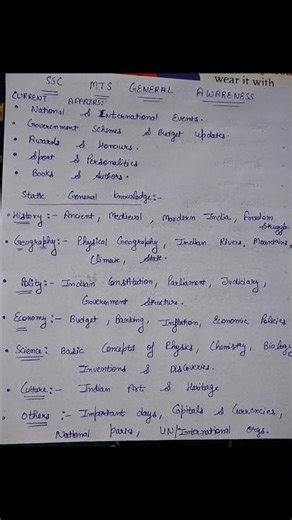 wear it with
SSC MTS GENERAL AWARENESS
CURRENT AFFAIRS:
• National & International Events.
• Government Schemes & Budget Updates.
• Awards & Honours.
• Sport & Personalities
• Books & Authors.
Static General Knowledge:-
• History:- Ancient, Medieval, Mordern India, Freedom
Struggle.
• Geography:- Physical Geography, Indian Rivers, Mountains,
Climate, State.
• Polity:- Indian Constitution, Parliament, Judiciary,
Government Structure.
• Economy:- Budget, Banking, Inflation, Economic Policies
• Science: Basic Concepts of Physics, Chemistry, Biology
Inventions & Discoveries.
• Culture:- Indian Art & Heritage
• Others:- Important days, Capitals & Currencies,
National parks, UN/International Orgs.